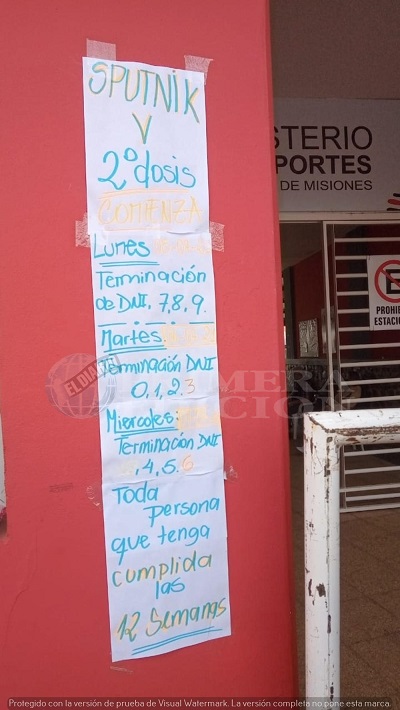 SPUTNIK
V
2º dosis
COMIENZA
Lunes
Terminación
de DNI, 7,8,9.
Martes:
Terminación DNI
0,1,2,3
Miercoles:
Terminación DNI
,4,5,6
Toda
persona
que tenga
cumplida
las
12 Semanas
STERIO
PORTES
DE MISIONES
E
PROHIB
ESTACIO
ELDIA
PRIMERA
EDICION
Protegido con la versión de prueba de Visual Watermark. La versión completa no pone esta marca.